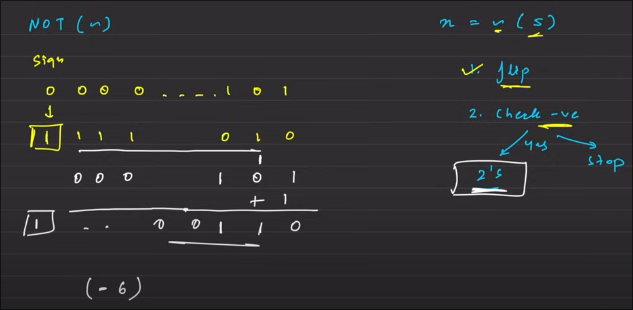 NOT (n)
sign
0 0 0 0 - - - . 1 0 1
↓
1 1 1 1 0 1 0
0 0 0 1 0 1
+ 1
1 .. 0 0 1 1 0
(-6)
x = ~ (5)
1. flip
2. Check -ve
yes
stop
2's